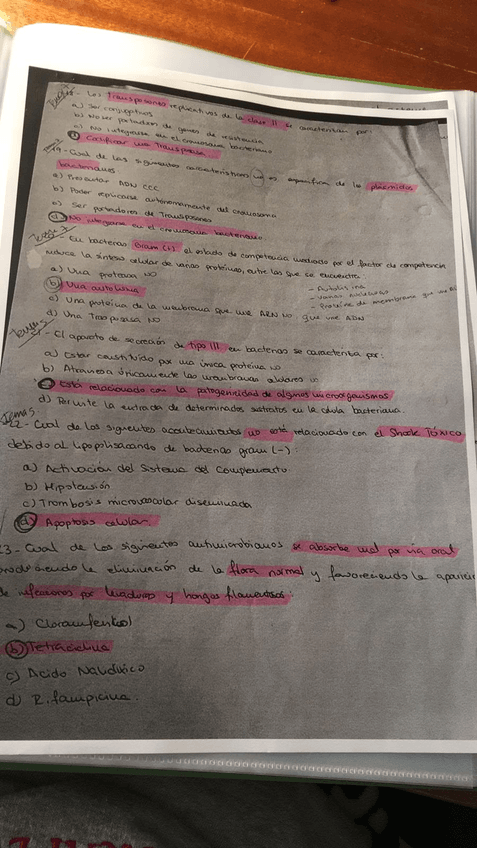 Los Transposones replicativos de la clase II se caracterizan por:
a) Ser conjugativos
b) No ser portadores de genes de resistencia
c) No integrarse en el cromosoma bacteriano
d) Codificar una Transposasa
Cual de las siguientes características no es específica de los plásmidos
bacterianos
a) Presentar ADN CCC
b) Poder replicarse autónomamente del cromosoma
c) Ser portadores de Transposones
d) No integrarse en el cromosoma bacteriano
En bacterias Gram (+) el estado de competencia mediado por el factor de competencia
induce la síntesis celular de varias proteínas, entre las que se encuentra:
a) Una proteasa NO
b) Una autolisina
c) Una proteína de la membrana que une ARN NO que une ADN
d) Una Transposasa NO
- Autolisina
- Proteína de membrana que
El aparato de secreción de tipo III en bacterias se caracteriza por:
a) Estar constituido por una única proteína NO
b) Atraviesa únicamente las membranas celulares NO
c) Está relacionado con la patogenicidad de algunos microorganismos
d) Permite la entrada de determinados sustratos en la célula bacteriana.
Tema 5
22- Cual de los siguientes acontecimientos no está relacionado con el Shock Tóxico
debido al lipopolisacárido de bacterias gram (-):
a) Activación del Sistema del Complemento
b) Hipotensión
c) Trombosis microvascular diseminada
d) Apoptosis celular.
23- Cual de los siguientes antimicrobianos se absorbe mal por vía oral
produciendo la eliminación de la flora normal y favoreciendo la
de infecciones por levaduras y hongos filamentosos:
a) Cloranfenicol
b) Tetraciclina
c) Acido Nalidixico
d) Rifampicina.